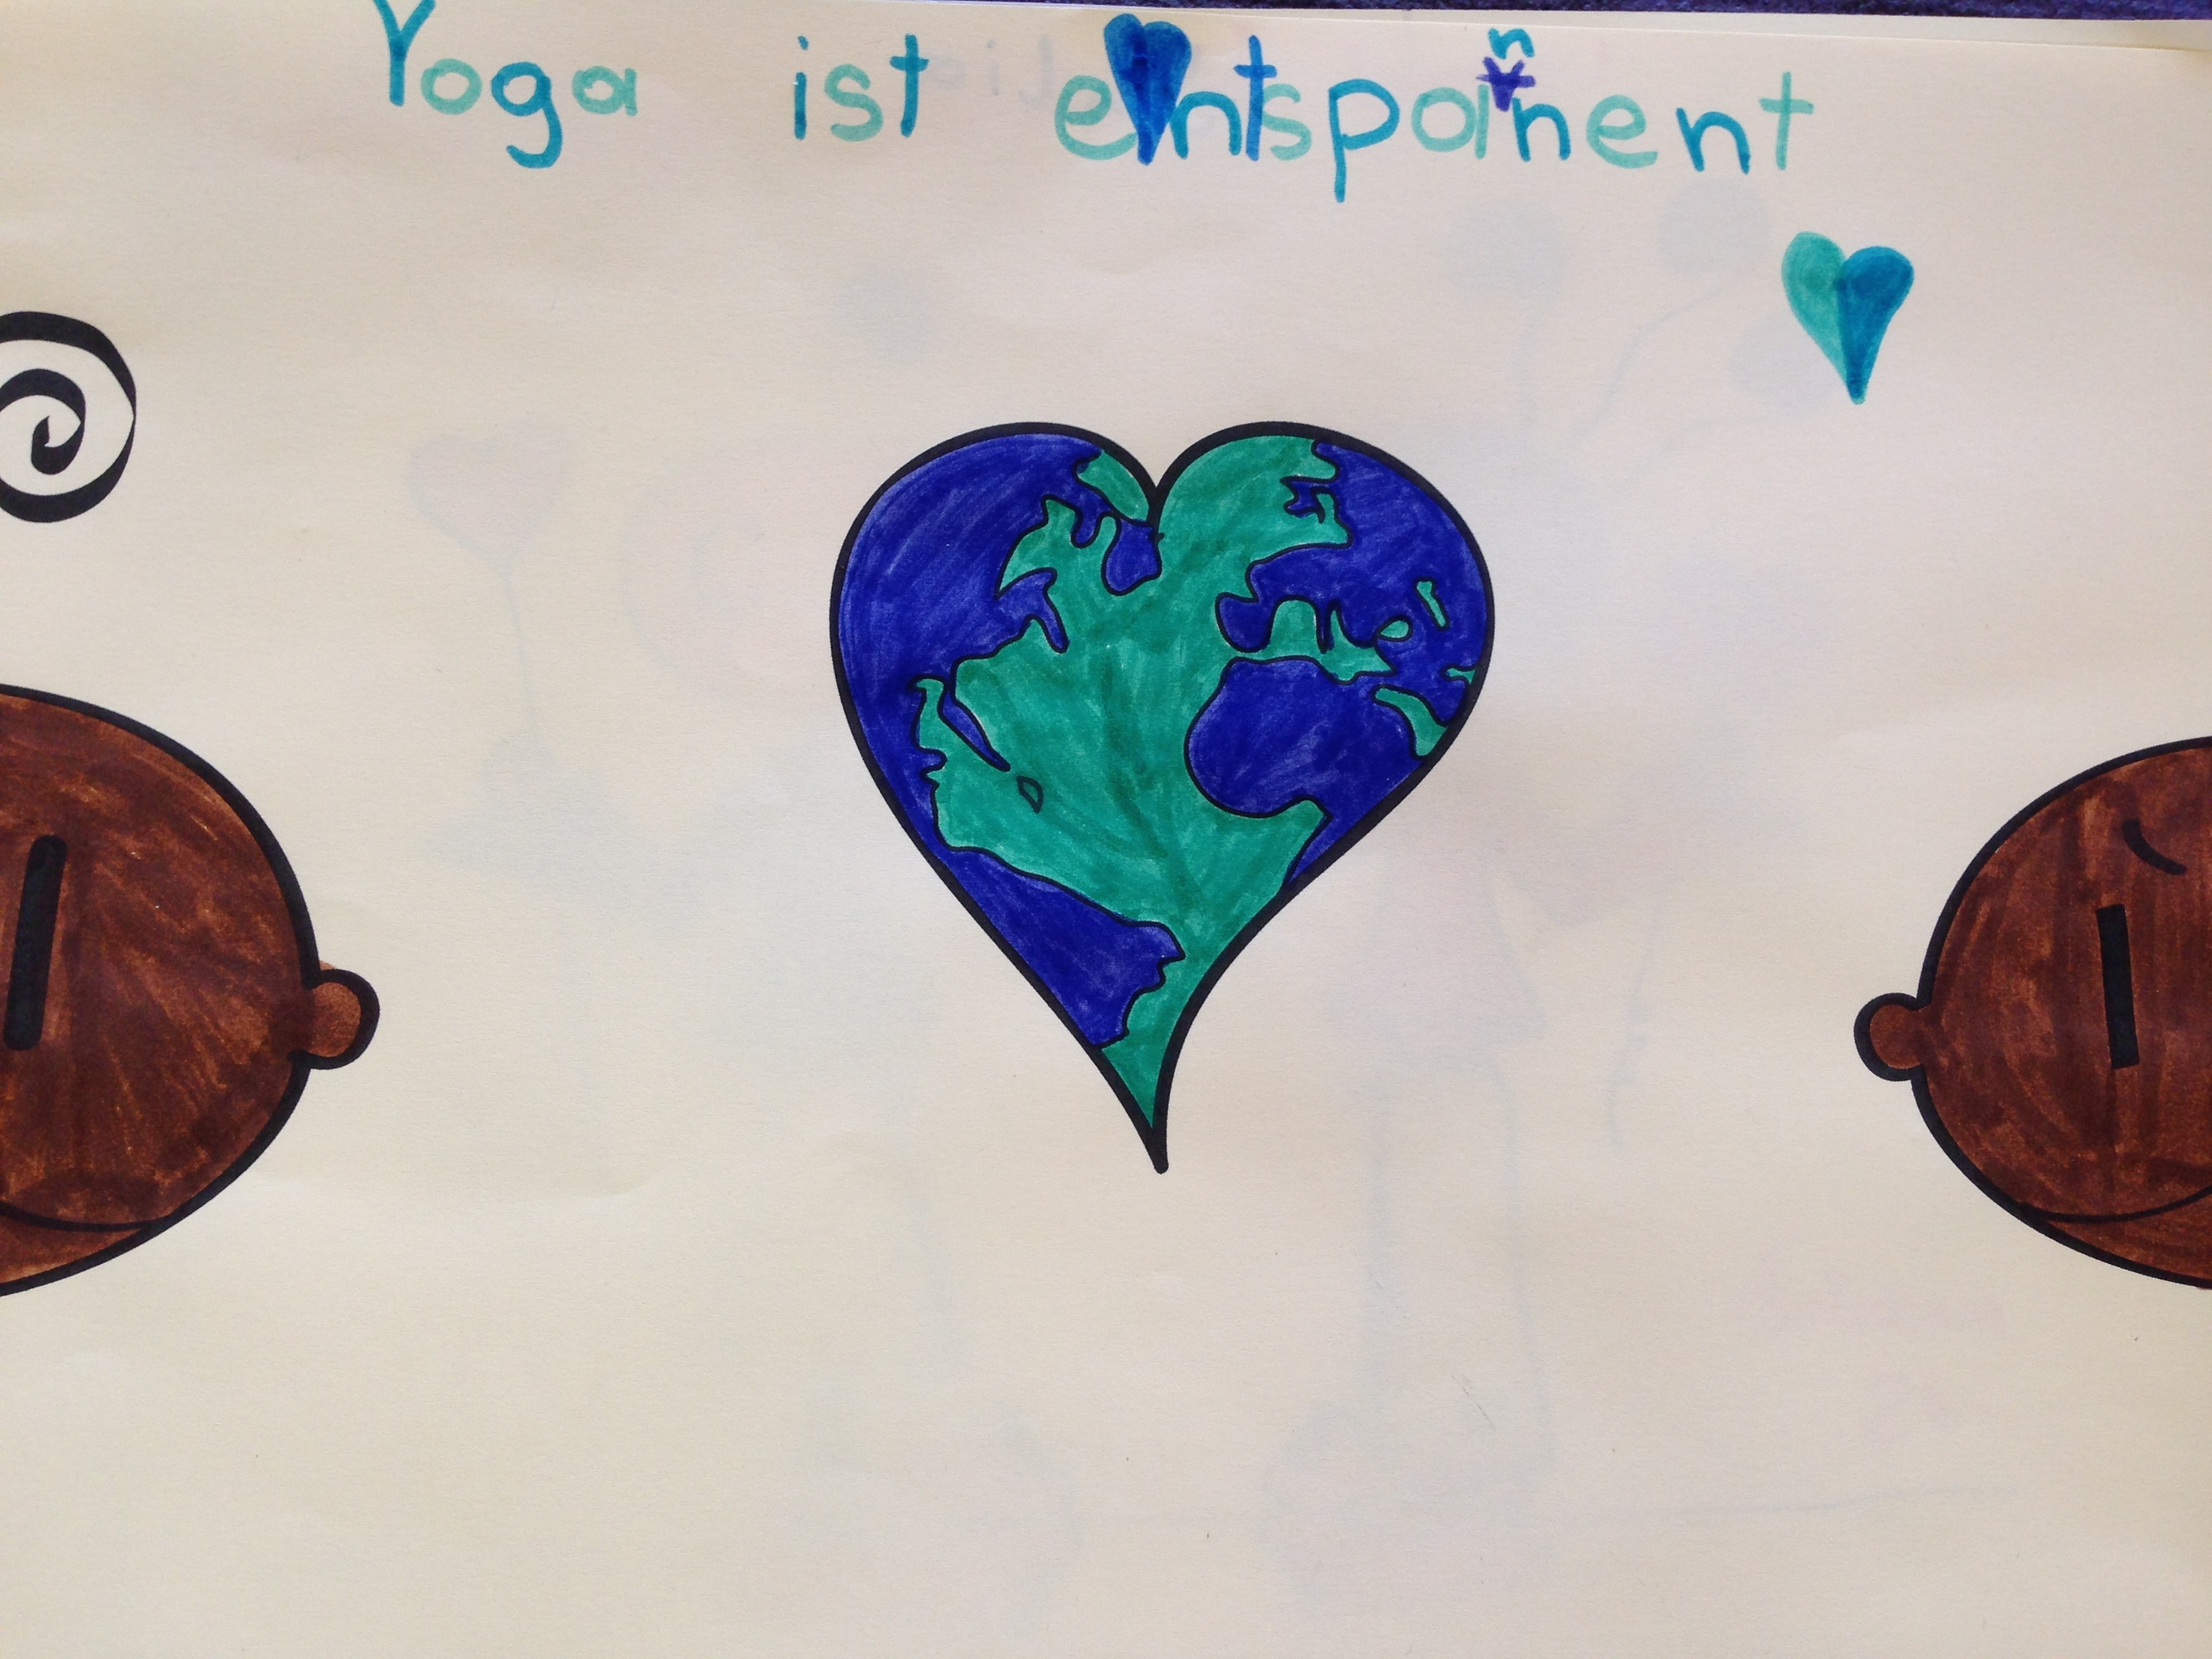 Yoga ist entspannent